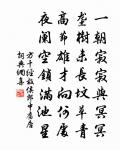 一朝寂寂與冥冥
壟樹未長墳草青
高節雄才向何處
夜闌空鎖滿池星
方干經故侯郎中舊居
詞典網書